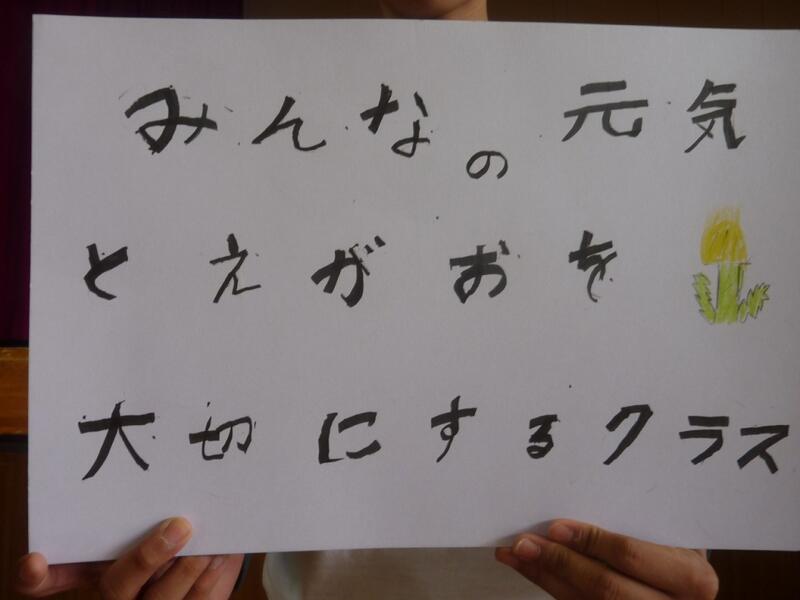 みんなの元気
とえがおを
大切にするクラス